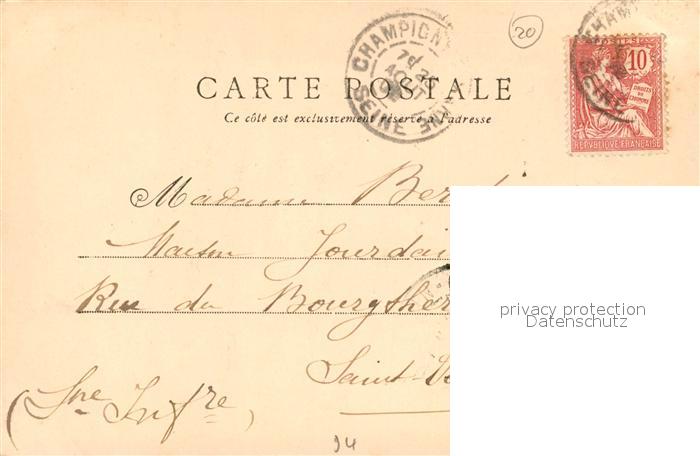 20
CHAMPIGNY
AOUT
SEINE
CARTE POSTALE
Ce côté est exclusivement réservé à l'adresse
POSTES
10
DROITS DE L'HOMME
REPUBLIQUE FRANÇAISE
SEINE
Madame Ber
Maison Jourdai
Rue du Bourgther
Saint-
(Sne Infre)
94
privacy protection
Datenschutz